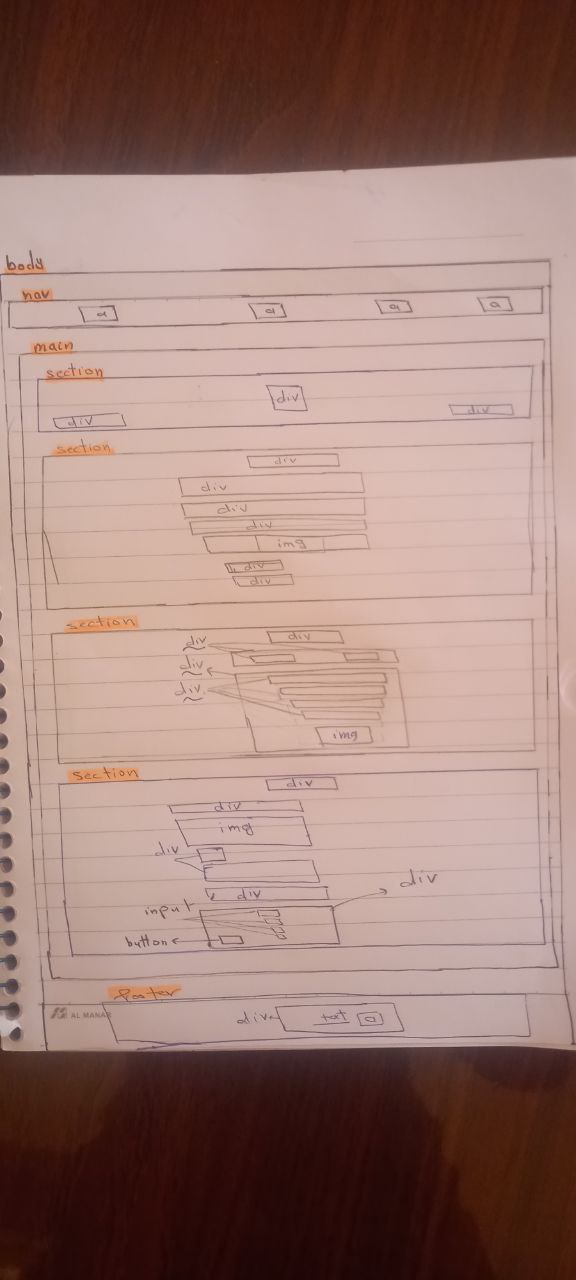 body
nav
a a a a
main
section
div
div div
section
div
div
div
div
img
div
div
section
div
div
div
div
img
section
div
div
img
div
div
div
input
button
footer
AL MANAR
div text a